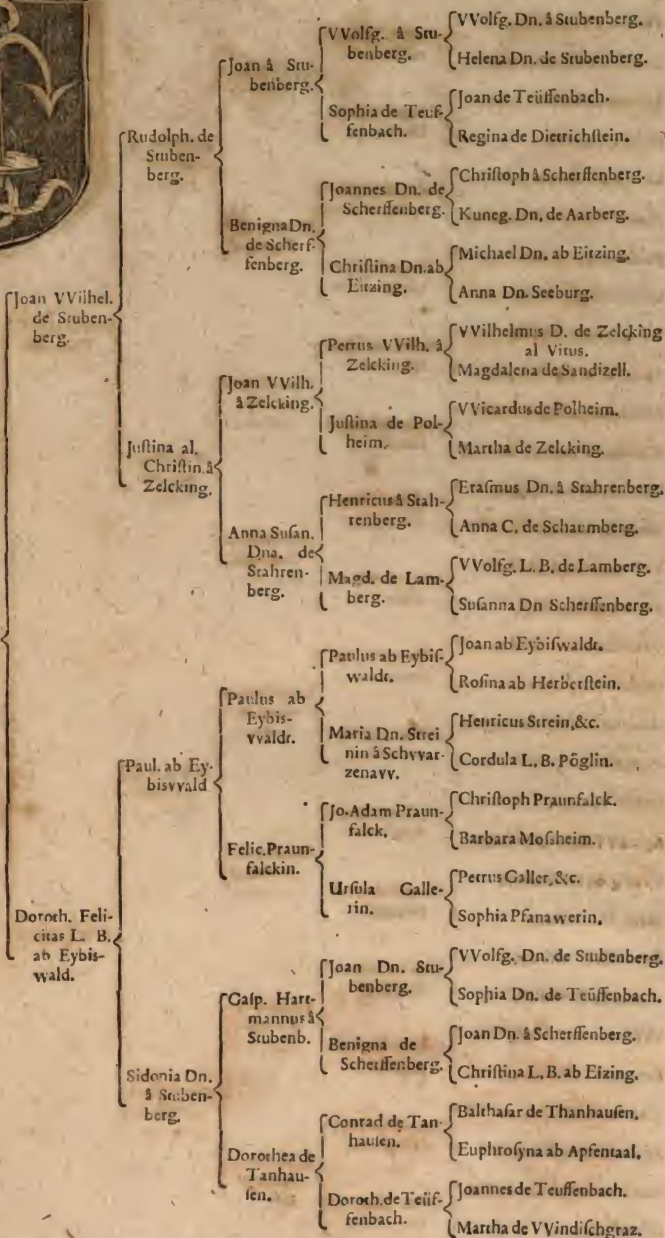 Joan VVilhel.
de Stuben-
berg.
Doroth. Feli-
citas L. B.
ab Eybis-
wald.
Rudolph. de
Stuben-
berg.
Juſtina al.
Chriſtin. â
Zelcking.
Paul. ab Ey-
bisvvald
Sidonia Dn.
â Stuben-
berg.
Joan â Stu-
benberg.
Benigna Dn.
de Scherf-
fenberg.
Joan VVilh.
â Zelcking.
Anna Suſan.
Dna. de
Stahren-
berg.
Paulus ab
Eybis-
vvaldt.
Felic. Praun-
falckin.
Gaſp. Hart-
mannus â
Stubenb.
Dorothea de
Tanhau-
ſen.
VVolfg. â Stu-
benberg.
Sophia de Teuf-
fenbach.
Joannes Dn. de
Scherffenberg.
Chriſtina Dn. ab
Eitzing.
Petrus VVilh. â
Zelcking.
Juſtina de Pol-
heim.
Henricus â Stah-
renberg.
Magd. de Lam-
berg.
Paulus ab Eybiſ-
waldt.
Maria Dn. Strei
nin â Schvvar-
zenavv.
Jo. Adam Praun-
falck.
Urſula Galle-
rin.
Joan Dn. Stu-
benberg.
Benigna de
Scherffenberg.
Conrad de Tan-
hauſen.
Doroth. de Teüf-
fenbach.
VVolfg. Dn. â Stubenberg.
Helena Dn. de Stubenberg.
Joan de Teüffenbach.
Regina de Dietrichſtein.
Chriſtoph â Scherffenberg.
Kuneg. Dn. de Aarberg.
Michael Dn. ab Eitzing.
Anna Dn. Seeburg.
VVilhelmus D. de Zelcking
al Vitus.
Magdalena de Sandizell.
VVicardus de Polheim.
Martha de Zelcking.
Eraſmus Dn. â Stahrenberg.
Anna C. de Schaumberg.
VVolfg. L. B. de Lamberg.
Suſanna Dn Scherffenberg.
Joan ab Eybiſwaldt.
Roſina ab Herberſtein.
Henricus Strein, &c.
Cordula L. B. Pöglin.
Chriſtoph Praunfalck.
Barbara Moſsheim.
Petrus Galler, &c.
Sophia Pfanawerin.
VVolfg. Dn. de Stubenberg.
Sophia Dn. de Teüffenbach.
Joan Dn. â Scherffenberg.
Chriſtina L. B. ab Eizing.
Balthaſar de Thanhauſen.
Euphroſyna ab Apfentaal.
Joannes de Teuffenbach.
Martha de VVindiſchgraz.